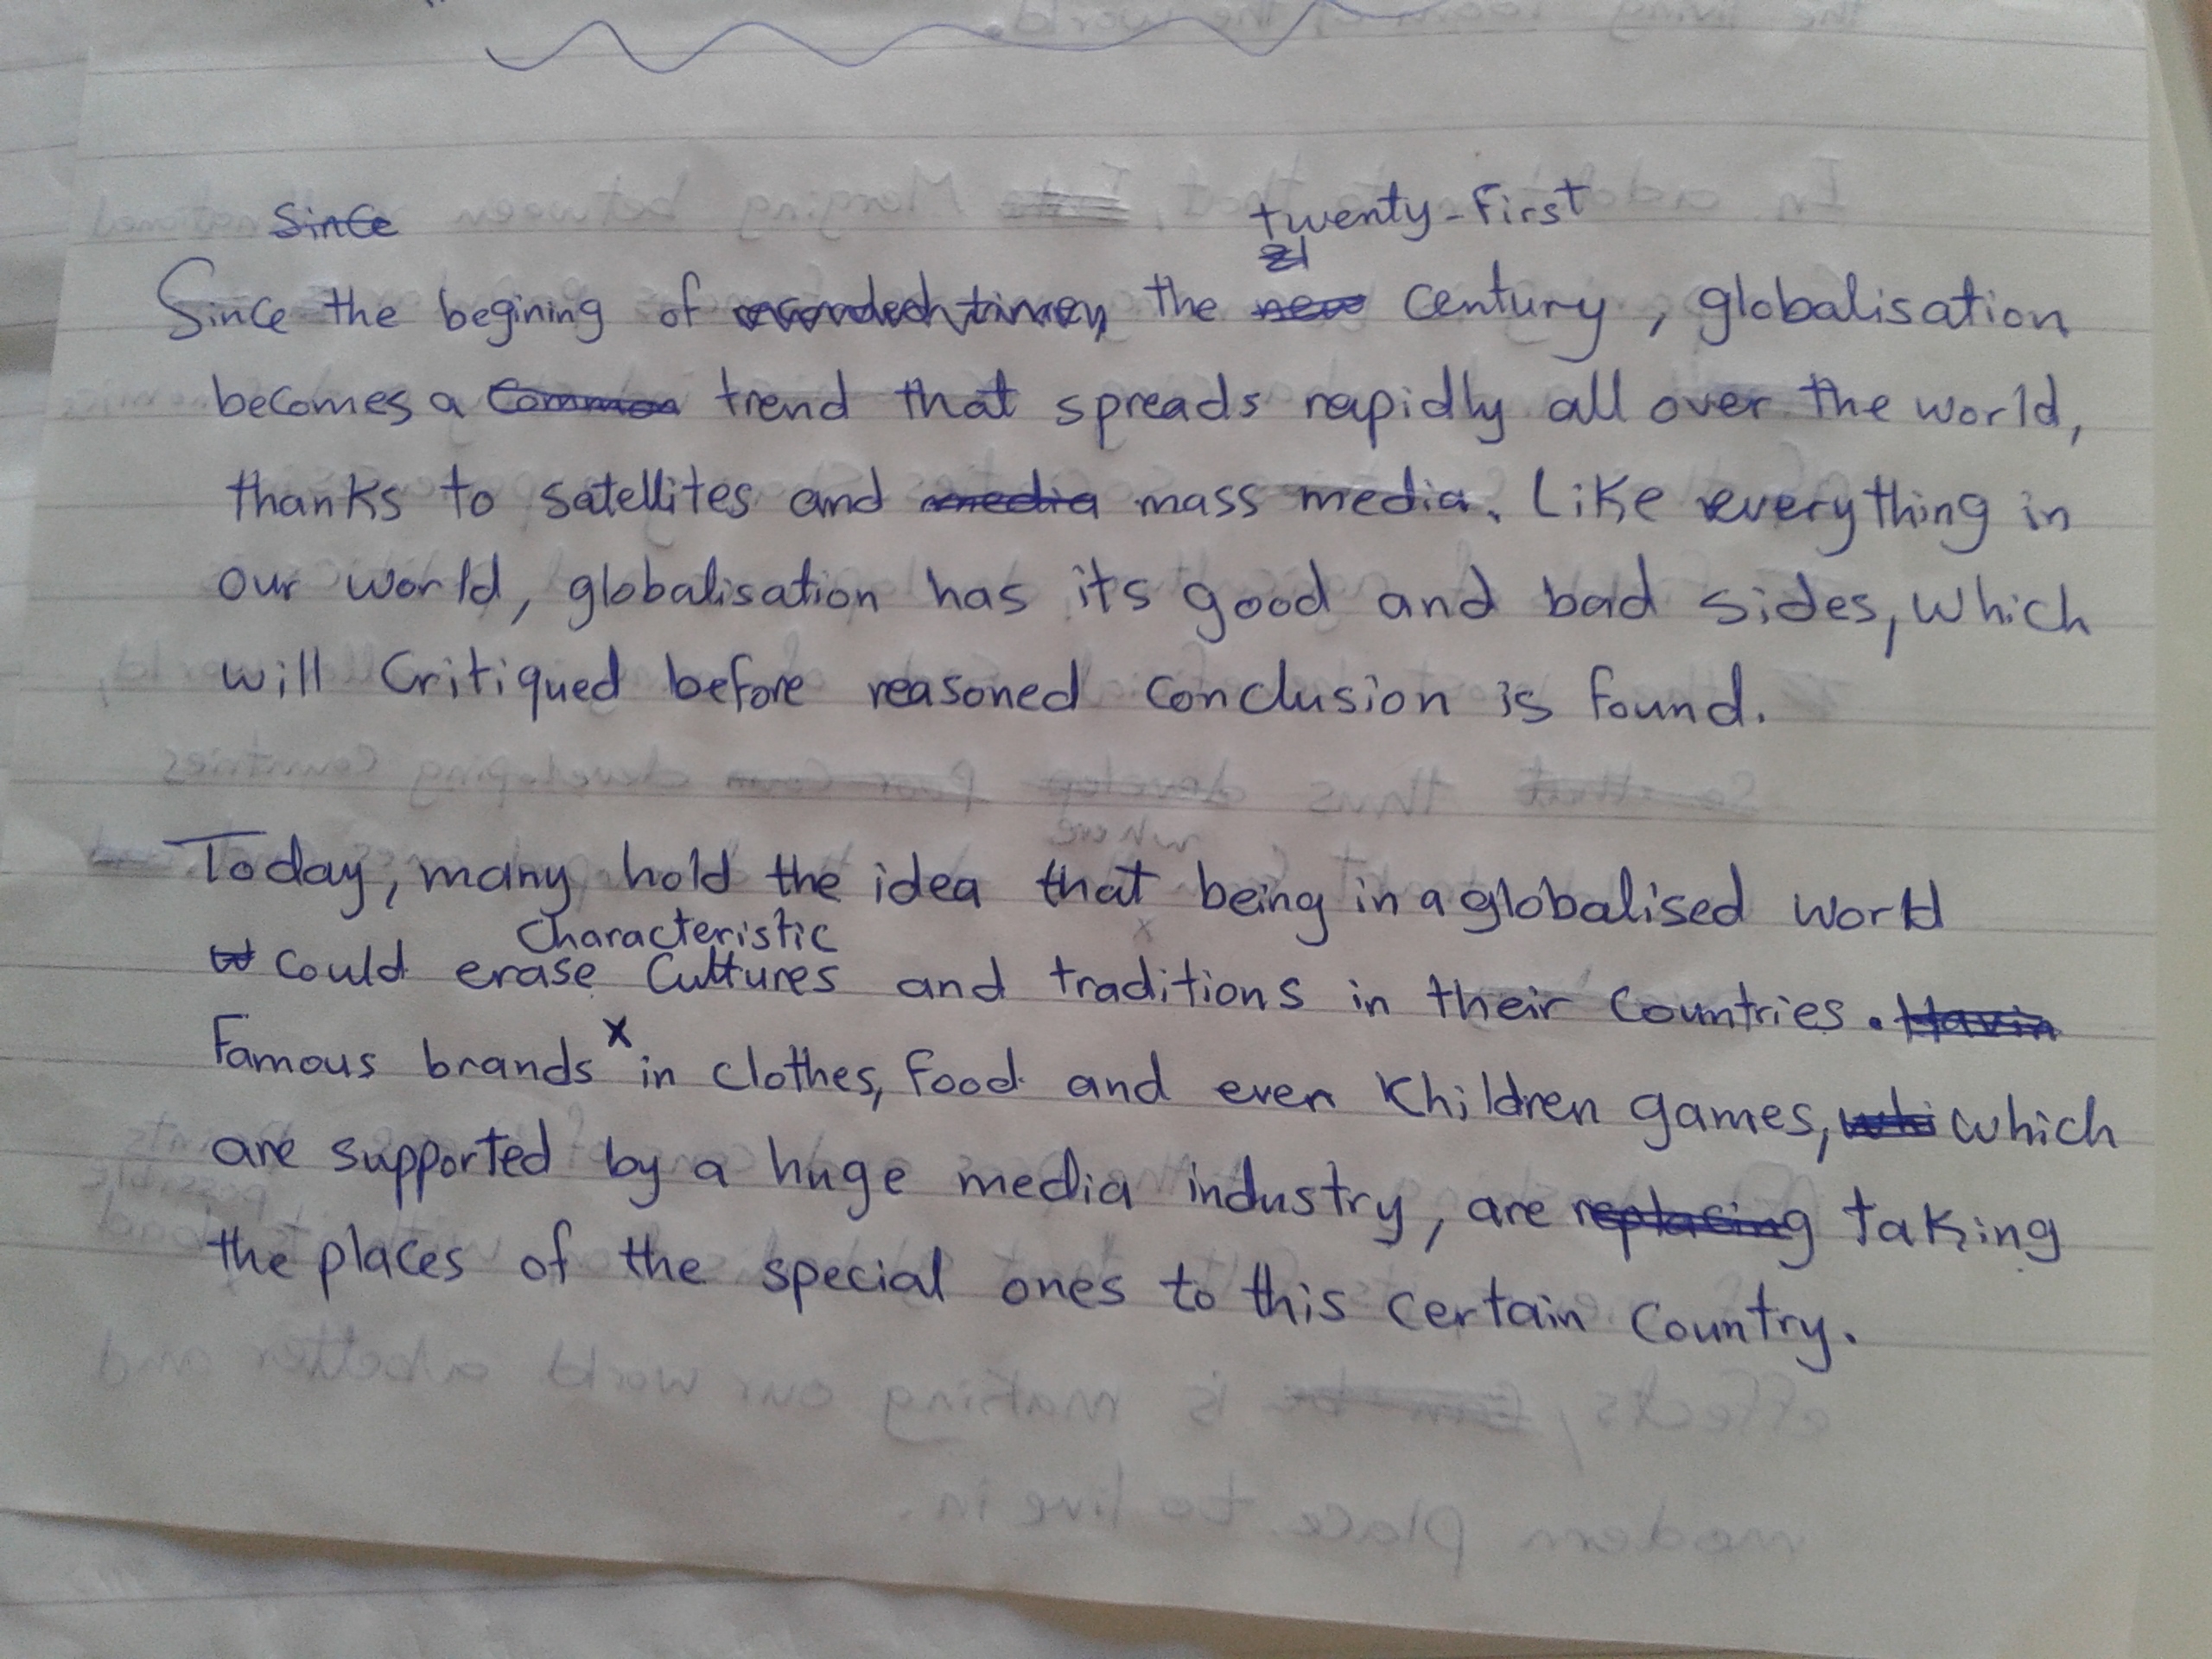 Since
twenty-First
21
Since the begining of the new Century, globalisation
becomes a Common trend that spreads rapidly all over the world,
thanks to satellites and media mass media. Like everything in
our world, globalisation has its good and bad sides, which
will Critiqued before reasoned Conclusion is found.
Today, many hold the idea that being in a globalised world
Characteristic
Could erase Cultures and traditions in their Countries. Havin
Famous brands x in clothes, food and even Children games, whi which
are supported by a huge media industry, are replacing taking
the places of the special ones to this certain Country.